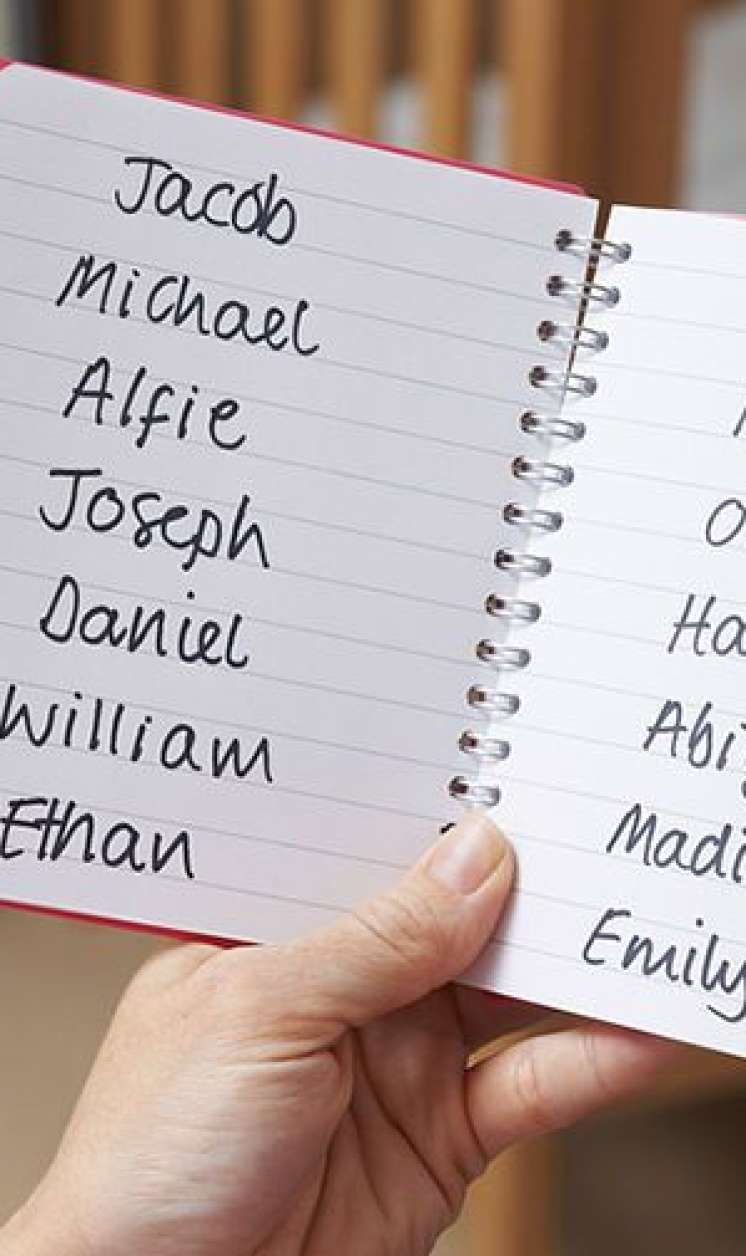 Jacob
Michael
Alfie
Joseph
Daniel
William
Ethan
Ha
Abi
Madi
Emily